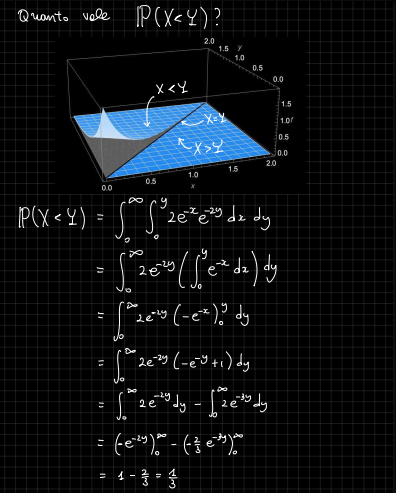 Quanto vale ℙ(X<Y)?
2.0
1.5
y
1.0
0.5
0.0
X<Y
X=Y
X>Y
1.5
1.0 f
0.5
0.0
0.0
0.5
1.0
1.5
2.0
x
ℙ(X<Y) = ∫₀^∞ ∫₀^y 2e^{-x}e^{-2y} dx dy
= ∫₀^∞ 2e^{-2y} (∫₀^y e^{-x} dx) dy
= ∫₀^∞ 2e^{-2y} (-e^{-x})₀^y dy
= ∫₀^∞ 2e^{-2y} (-e^{-y}+1) dy
= ∫₀^∞ 2e^{-2y} dy - ∫₀^∞ 2e^{-3y} dy
= (-e^{-2y})₀^∞ - (-2/3 e^{-3y})₀^∞
= 1 - 2/3 = 1/3